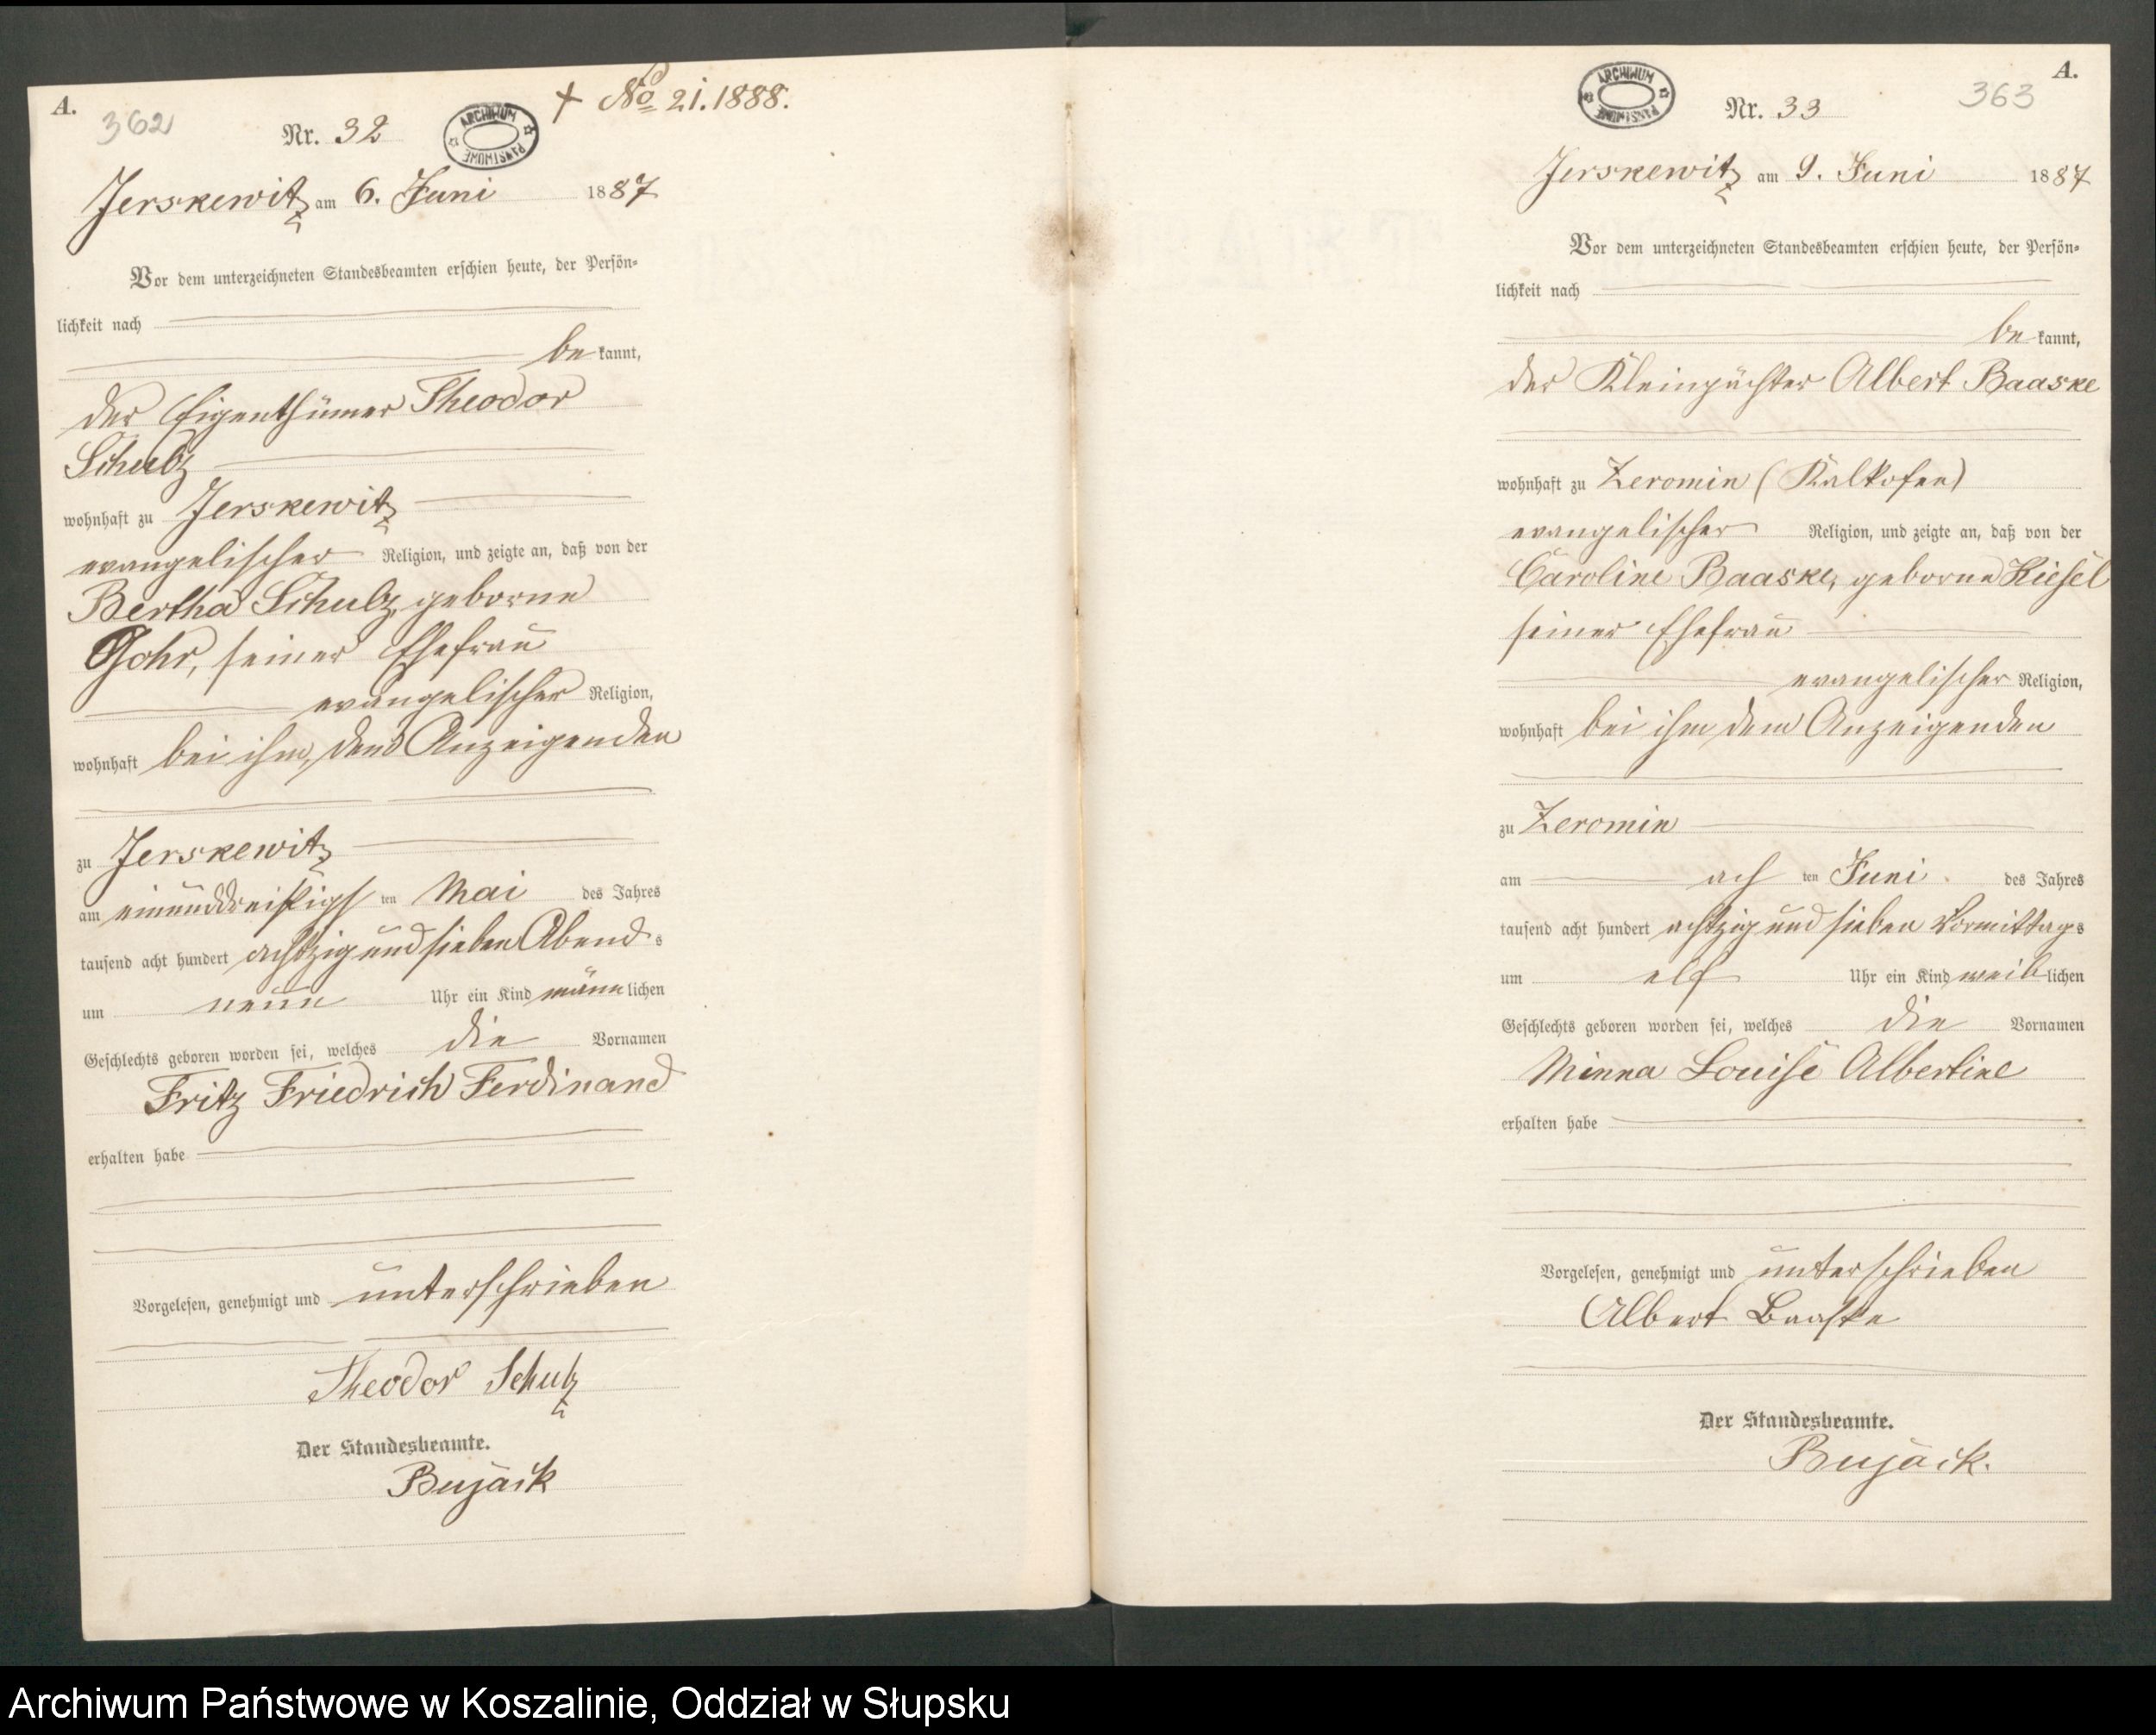 A.
362
Nr. 32
ARCHIWUM PAŃSTWOWE
† No 21. 1888.
Jerskewitz am 6. Juni 1887
Vor dem unterzeichneten Standesbeamten erschien heute, der Persön-
lichkeit nach
be kannt,
der Eigenthümer Theodor
Schulz
wohnhaft zu Jerskewitz
evangelischer Religion, und zeigte an, daß von der
Bertha Schulz, geborne
Gohr, seiner Ehefrau
evangelischer Religion,
wohnhaft bei ihm, dem Anzeigenden
zu Jerskewitz
am einunddreißigs ten Mai des Jahres
tausend acht hundert achtzig und sieben Abend s
um neun Uhr ein Kind männ lichen
Geschlechts geboren worden sei, welches die Vornamen
Fritz Friedrich Ferdinand
erhalten habe
Vorgelesen, genehmigt und unterschrieben
Theodor Schulz
Der Standesbeamte.
Bujack
A.
363
ARCHIWUM PAŃSTWOWE
Nr. 33
Jerskewitz am 9. Juni 1887
Vor dem unterzeichneten Standesbeamten erschien heute, der Persön-
lichkeit nach
be kannt,
der Kleinpächter Albert Baaske
wohnhaft zu Zeromin (Kalkofen)
evangelischer Religion, und zeigte an, daß von der
Caroline Baaske, geborne Kiesel
seiner Ehefrau
evangelischer Religion,
wohnhaft bei ihm dem Anzeigenden
zu Zeromin
am ach ten Juni des Jahres
tausend acht hundert achtzig und sieben Vormittag s
um elf Uhr ein Kind weib lichen
Geschlechts geboren worden sei, welches die Vornamen
Minna Louise Albertine
erhalten habe
Vorgelesen, genehmigt und unterschrieben
Albert Baaske
Der Standesbeamte.
Bujack.
Archiwum Państwowe w Koszalinie, Oddział w Słupsku